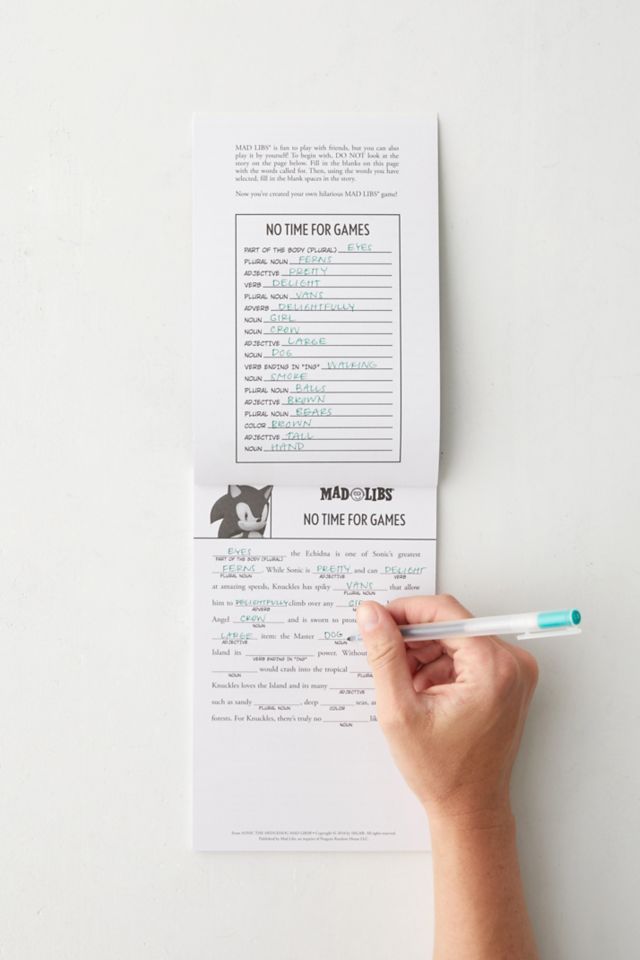 MAD LIBS® is fun to play with friends, but you can also
play it by yourself! To begin with, DO NOT look at the
story on the page below. Fill in the blanks on this page
with the words called for. Then, using the words you have
selected, fill in the blank spaces in the story.
Now you've created your own hilarious MAD LIBS® game!
NO TIME FOR GAMES
PART OF THE BODY (PLURAL) EYES
PLURAL NOUN FERNS
ADJECTIVE PRETTY
VERB DELIGHT
PLURAL NOUN VANS
ADVERB DELIGHTFULLY
NOUN GIRL
NOUN CROW
ADJECTIVE LARGE
NOUN DOG
VERB ENDING IN "ING" WALKING
NOUN SMORE
PLURAL NOUN BALLS
ADJECTIVE BROWN
PLURAL NOUN BEARS
COLOR BROWN
ADJECTIVE TALL
NOUN HAND
MAD LIBS®
NO TIME FOR GAMES
EYES the Echidna is one of Sonic's greatest
PART OF THE BODY (PLURAL)
FERNS. While Sonic is PRETTY and can DELIGHT
PLURAL NOUN ADJECTIVE VERB
at amazing speeds, Knuckles has spiky VANS that allow
PLURAL NOUN
him to DELIGHTFULLY climb over any
ADVERB
Angel CROW and is sworn to
NOUN
LARGE item: the Master DOG
ADJECTIVE NOUN
Island its power. Without
VERB ENDING IN "ING"
would crash into the tropical
NOUN
Knuckles loves the Island and its many
ADJECTIVE
such as sandy , deep seas,
PLURAL NOUN COLOR
forests. For Knuckles, there's truly no
NOUN
From SONIC THE HEDGEHOG MAD LIBS® • Copyright © by SEGA®. All rights reserved.
Published by Mad Libs, an imprint of Penguin Random House LLC.